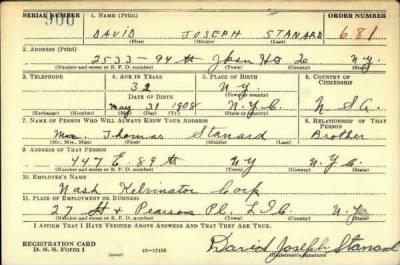 SERIAL NUMBER 1. NAME (Print) ORDER NUMBER
900 DAVID JOSEPH STANARD 681
(First) (Middle) (Last)
2. ADDRESS (Print)
2533-94 th N.Y.
(Number and street or R. F. D. number) (Town) (County) (State)
3. TELEPHONE 4. AGE IN YEARS 5. PLACE OF BIRTH 6. COUNTRY OF CITIZENSHIP
32 N.Y.
DATE OF BIRTH (Town or county)
May 31 1908 N.Y.C. U.S.A.
(Exchange) (Number) (Mo.) (Day) (Yr.) (State or country)
7. NAME OF PERSON WHO WILL ALWAYS KNOW YOUR ADDRESS 8. RELATIONSHIP OF THAT PERSON
Thomas Stanard Brother
(Mr., Mrs., Miss) (First) (Middle) (Last)
9. ADDRESS OF THAT PERSON
447 E. 89 th NY N.Y.C.
(Number and street or R. F. D. number) (Town) (County) (State)
10. EMPLOYER'S NAME
Nash Kelvinator Corp
11. PLACE OF EMPLOYMENT OR BUSINESS
27 St & Pearsons Pl. L.I.C. N.Y.
(Number and street or R. F. D. number) (Town) (County) (State)
I AFFIRM THAT I HAVE VERIFIED ABOVE ANSWERS AND THAT THEY ARE TRUE.
REGISTRATION CARD
D. S. S. Form 1 (over) 16-17105 David Joseph Stanard
(Registrant's signature)